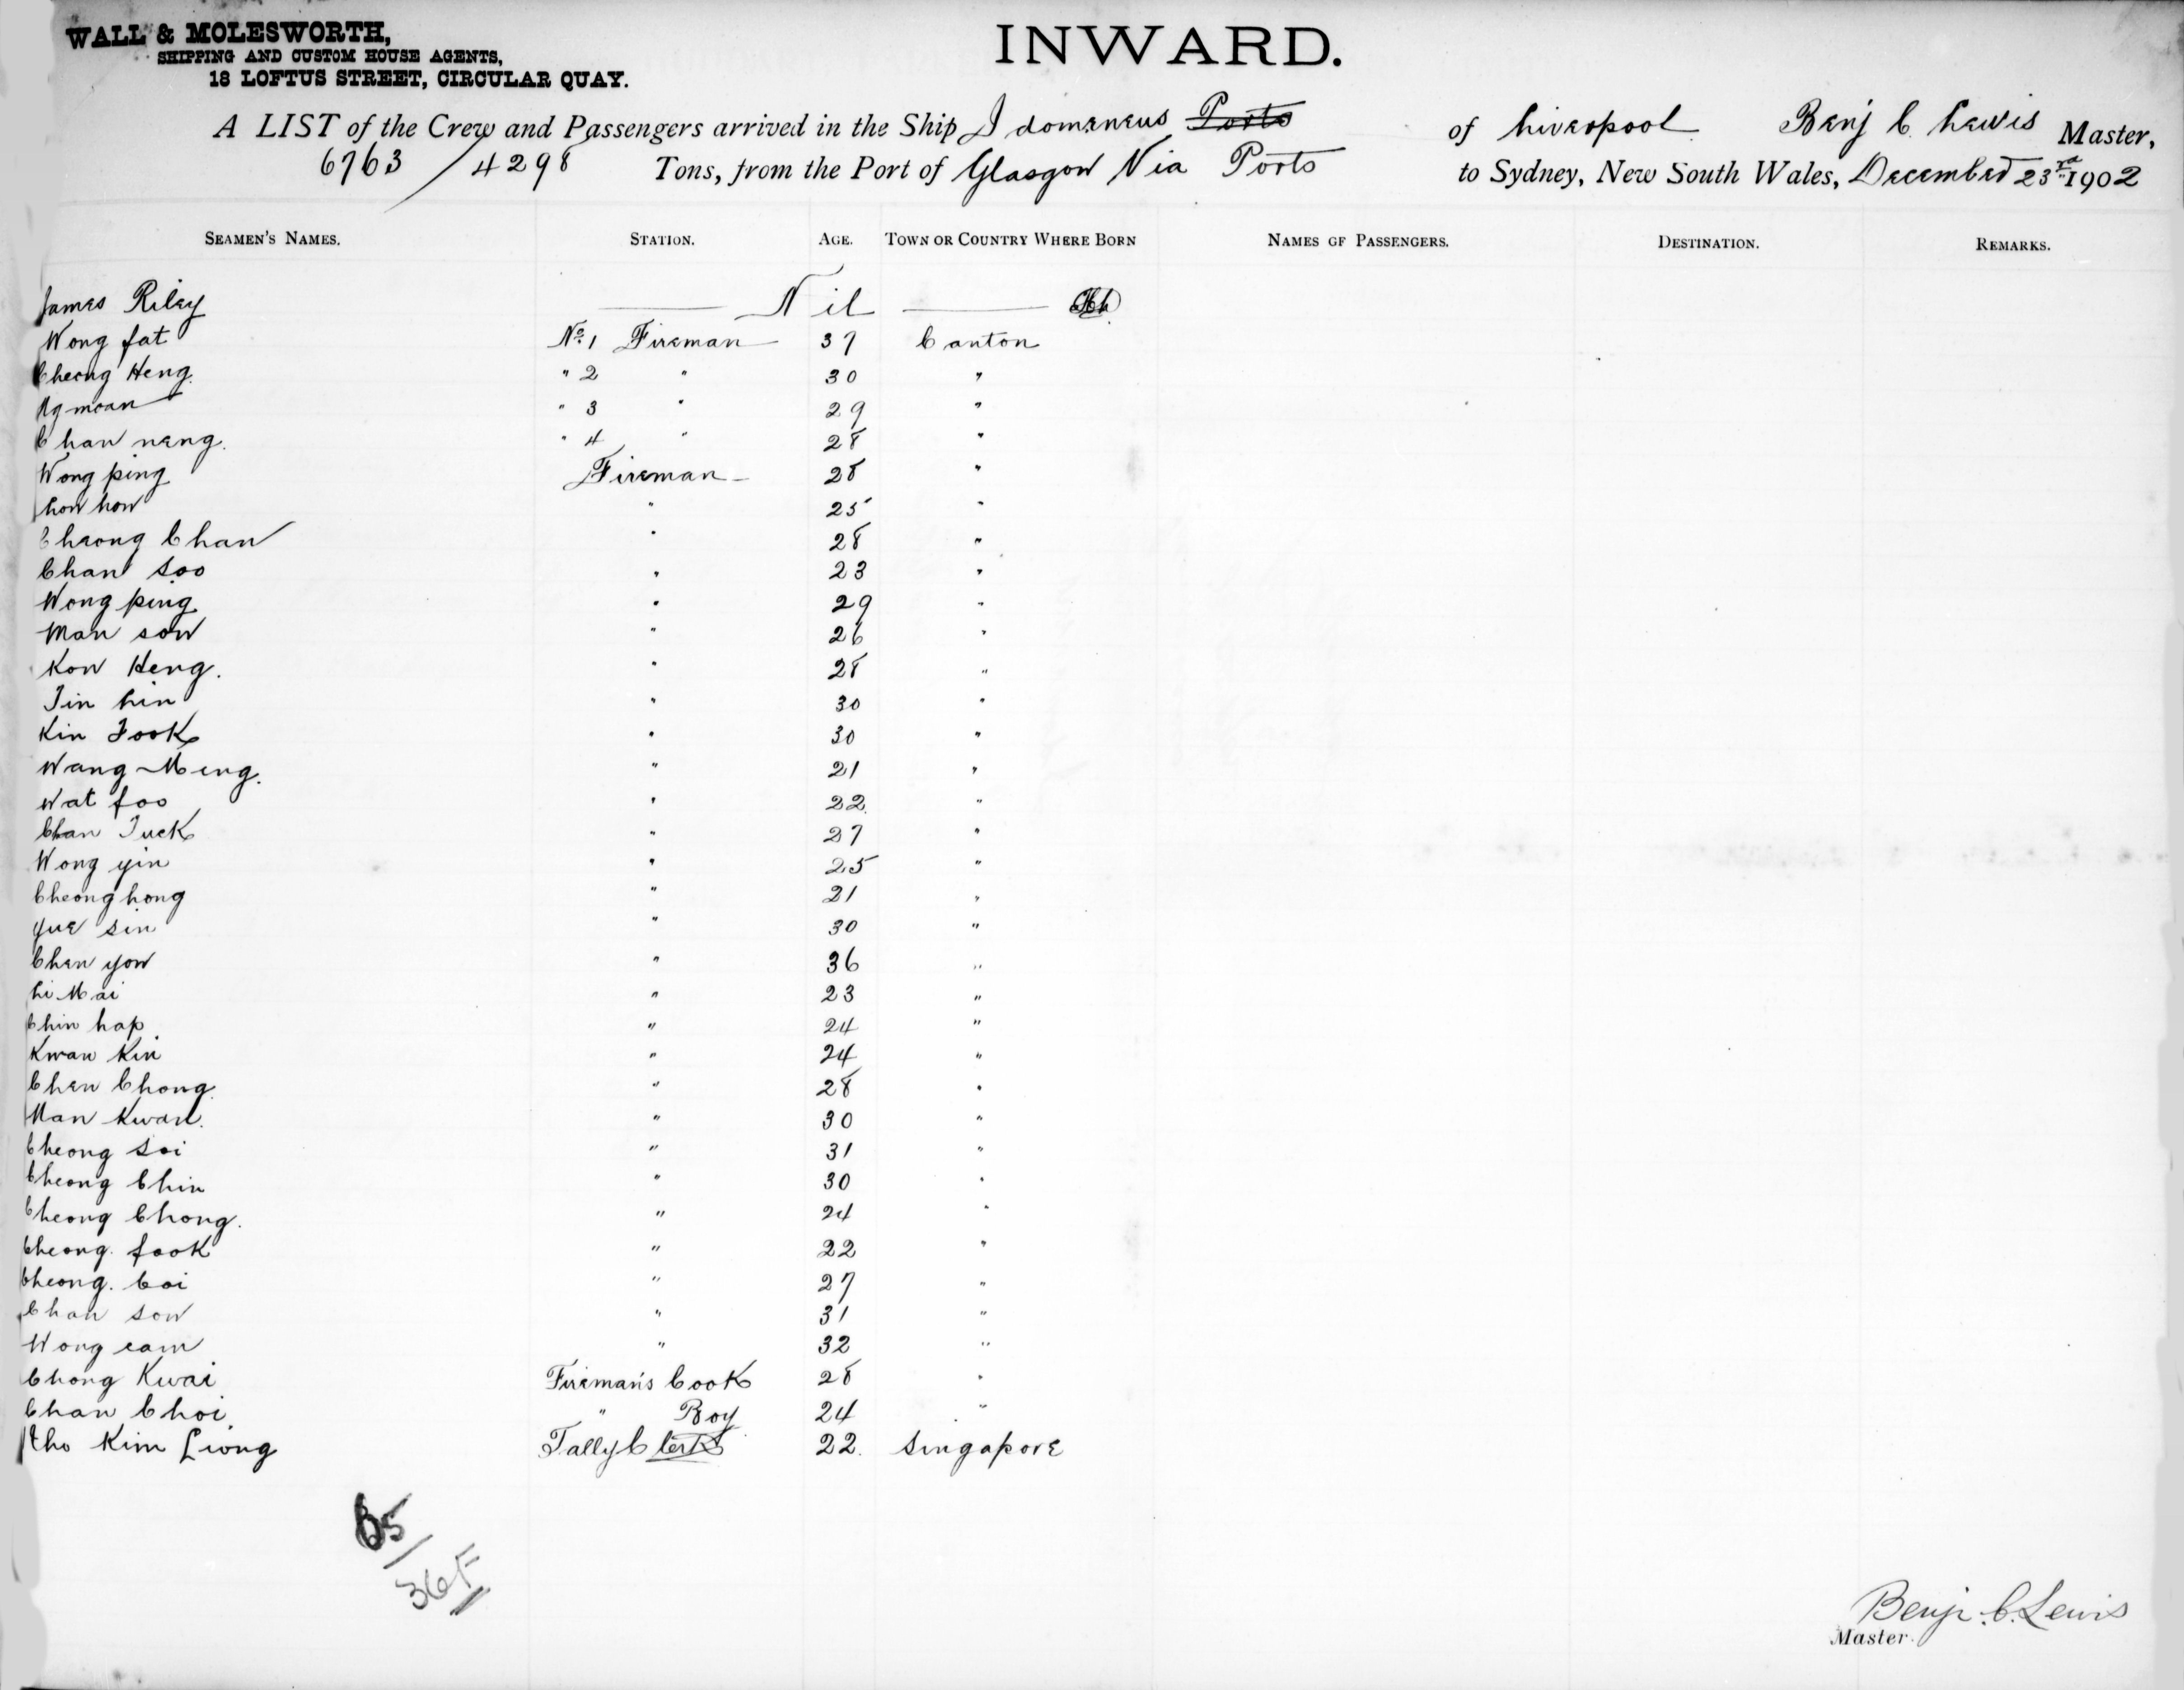 WALL & MOLESWORTH,
SHIPPING AND CUSTOM HOUSE AGENTS,
18 LOFTUS STREET, CIRCULAR QUAY.
INWARD.
A LIST of the Crew and Passengers arrived in the Ship Idomeneus Ports of Liverpool Benj C. Lewis Master,
6763/4298 Tons, from the Port of Glasgow Via Ports to Sydney, New South Wales, December 23rd 1902
SEAMEN'S NAMES. STATION. AGE. TOWN OR COUNTRY WHERE BORN NAMES OF PASSENGERS. DESTINATION. REMARKS.
James Riley Nil
Wong fat No. 1 Fireman 37 Canton
Cheong Heng. " 2 " 30 "
Ng moan " 3 " 29 "
Chan neng. " 4 " 28 "
Wong ping Fireman 28 "
Low how " 25 "
Cheong Chan " 28 "
Chan Soo " 23 "
Wong ping " 29 "
Man sow " 26 "
Kow Heng. " 28 "
Tin Lin " 30 "
Kin Fook " 30 "
Wang Meng. " 21 "
Wat foo " 22 "
Chan Tuck " 27 "
Wong yin " 25 "
Cheong hong " 21 "
Yue Sin " 30 "
Chen yow " 36 "
Li Mai " 23 "
Chin hap " 24 "
Kwan Kin " 24 "
Chen Chong. " 28 "
Man Kwan. " 30 "
Cheong Soi " 31 "
Cheong Chin " 30 "
Cheong Chong. " 24 "
Cheong. fook " 22 "
Cheong. Coi " 27 "
Chan sow " 31 "
Wong cam " 32 "
Chong Kwai Fireman's Cook 28 "
Chan Choi " Boy 24 "
Kim Liong Tally Clerk 22. Singapore
65/
36F
Benj. C. Lewis
Master.